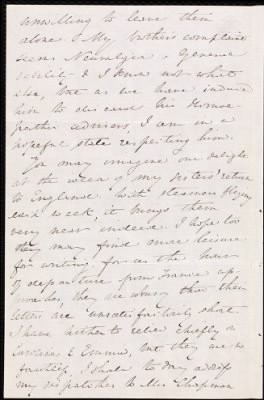 unwilling to leave them
alone. My brothers complaint
seems Neuralgia & General
debility & I know not what
else, but as we have induced
him to discard his Homoe-
pathic advisers, I am in a
hopeful state respecting him.
You may imagine our delight
at the idea of my sisters' return
to England. With steamers plying
each week, it brings them
very near indeed. I hope too
they may find more leisure
for writing. for as the hour
of departure from France ap-
proaches, they are so busy that their
letters are unsatisfactorily short.
I have hitherto relied chiefly on
Caroline & Emma, but they are so
I shall to day address
my dispatches to Mrs Chapman